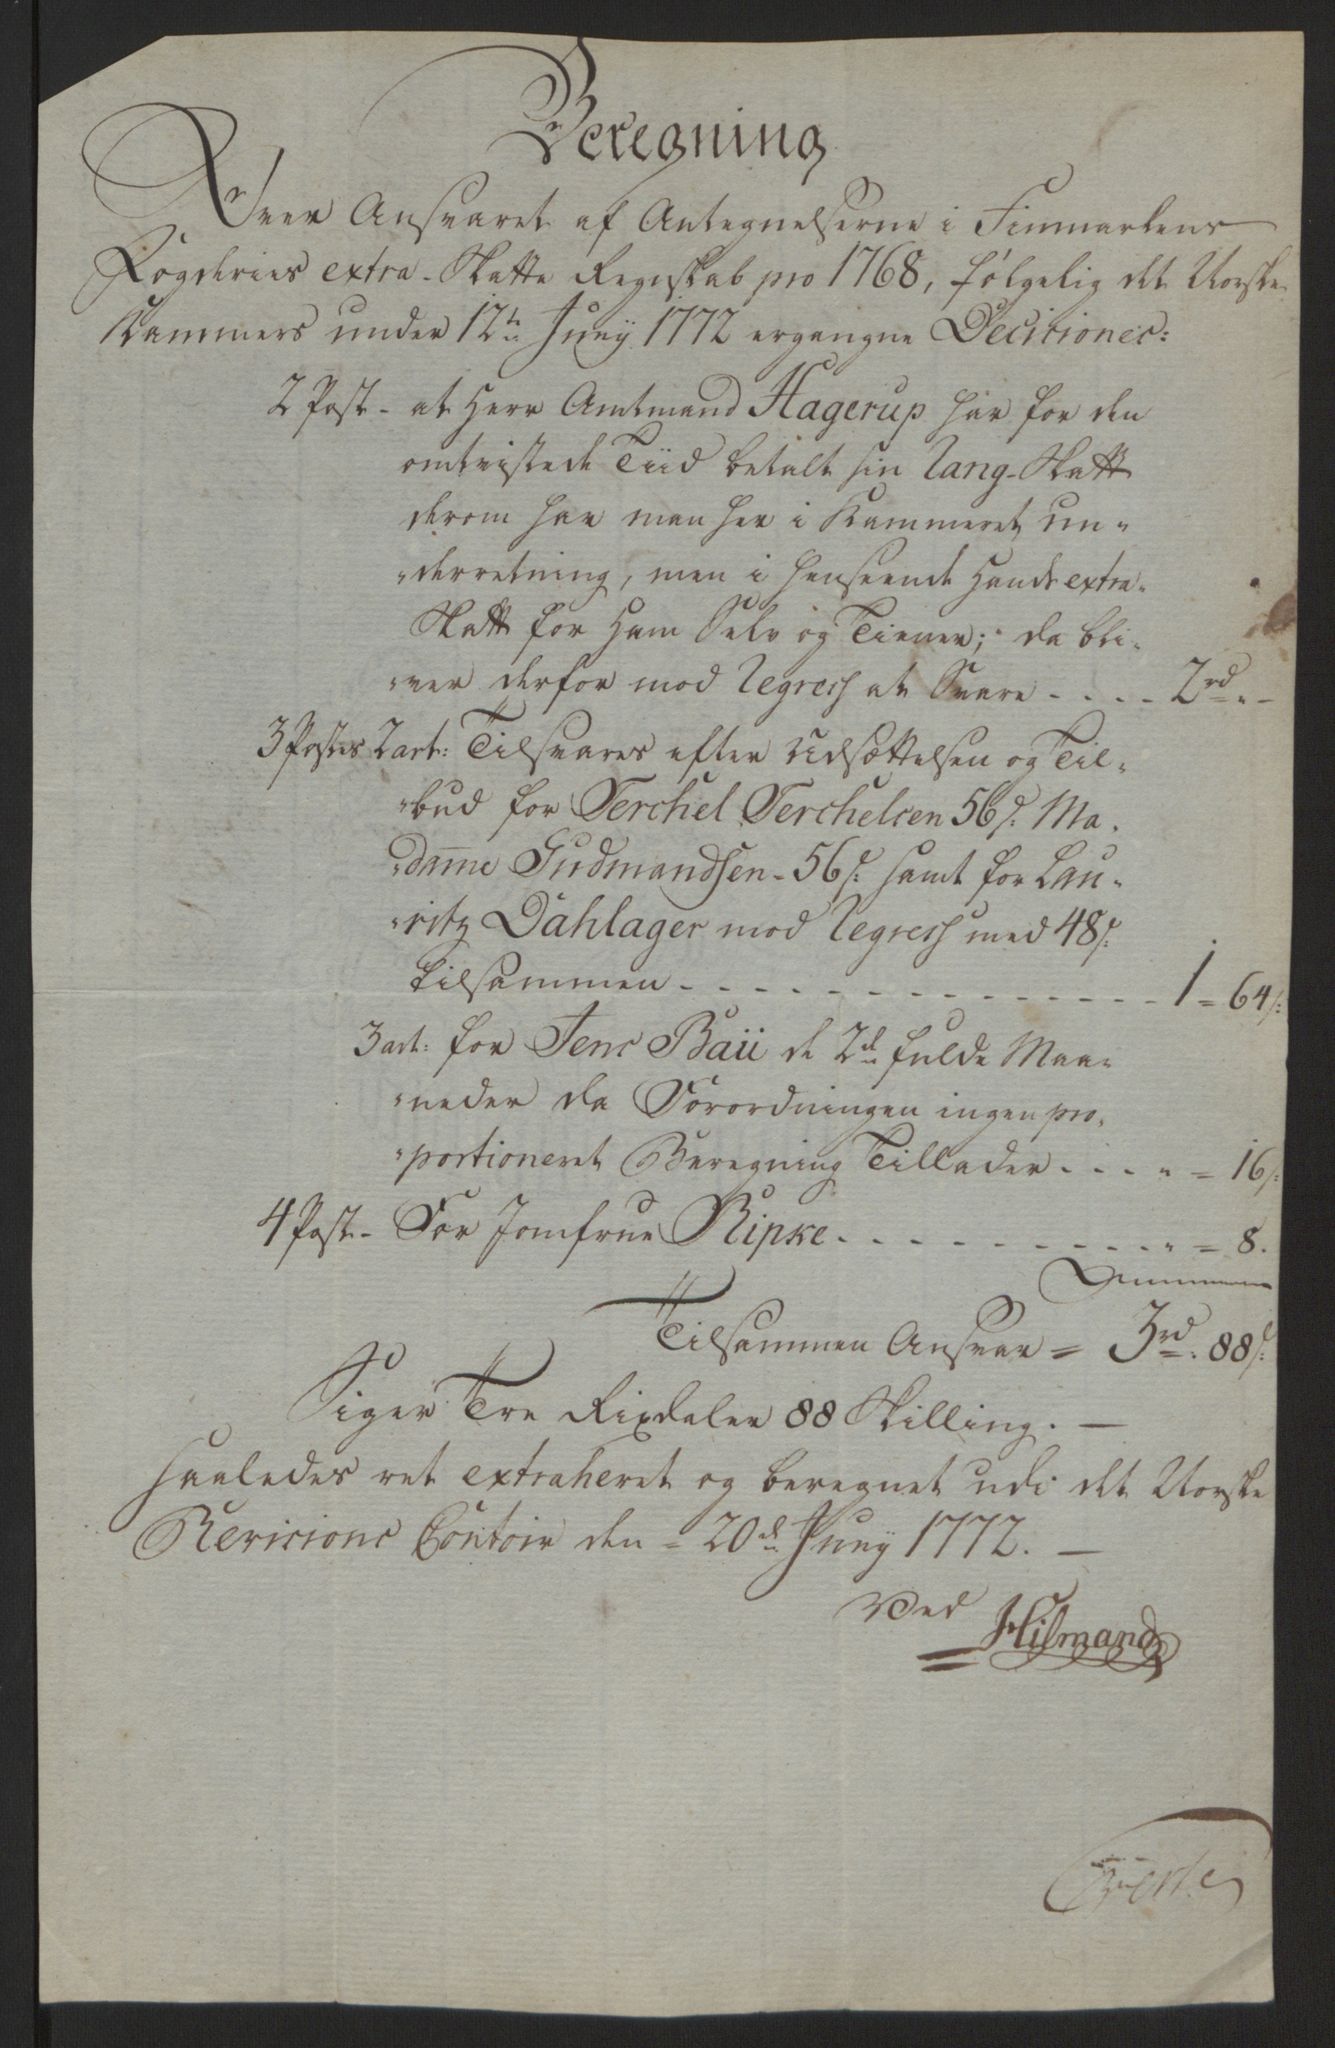 Beregning
Over Ansvaret af Antegnelserne i Finmarkens
Fogderies extra-Skatte Regnskab pro 1768, følgelig det Norske
Kammers under 12te Junij 1772 ergangne Decisioner:
2 Post - at Herr Amtmand Hagerup har for den
omtvistede Tiid betalt sin Rang-Skatt
derom har man her i Kammeret un-
-derretning, men i henseende Hands extra-
Skatt for Ham Selv og Tiener; da bli-
-ver derfor mod Regress at Svare - - - - 2rd " -
3 Postes 2 art: Tilsvares efter Udsættelsen og Til-
-bud for Terchel Terchelsen 56 s: Ma-
-dame Gudmandsen - 56 s: samt for Lau-
-ritz Dahlager mod Regress med 48 s:
tilsammen - - - - - - - - - - - - - - - 1 = 64 s:
3 art: for Jens Baii de 2de fulde Maa-
-neder da Forordningen ingen pro-
-portioneret Beregning Tillader - - - " = 16 s:
4 Post - For Jomfrue Ripke - - - - - - - - - - " = 8.
Summa
Tilsammen Ansvar = 3rd. 88 s:
Siger Tre Rixdaler 88 Skilling. —
Saaledes ret extraheret og beregnet udi det Norske
Revisions Contoir den = 20de Junij 1772. —
Ved
Hilmand
Verte